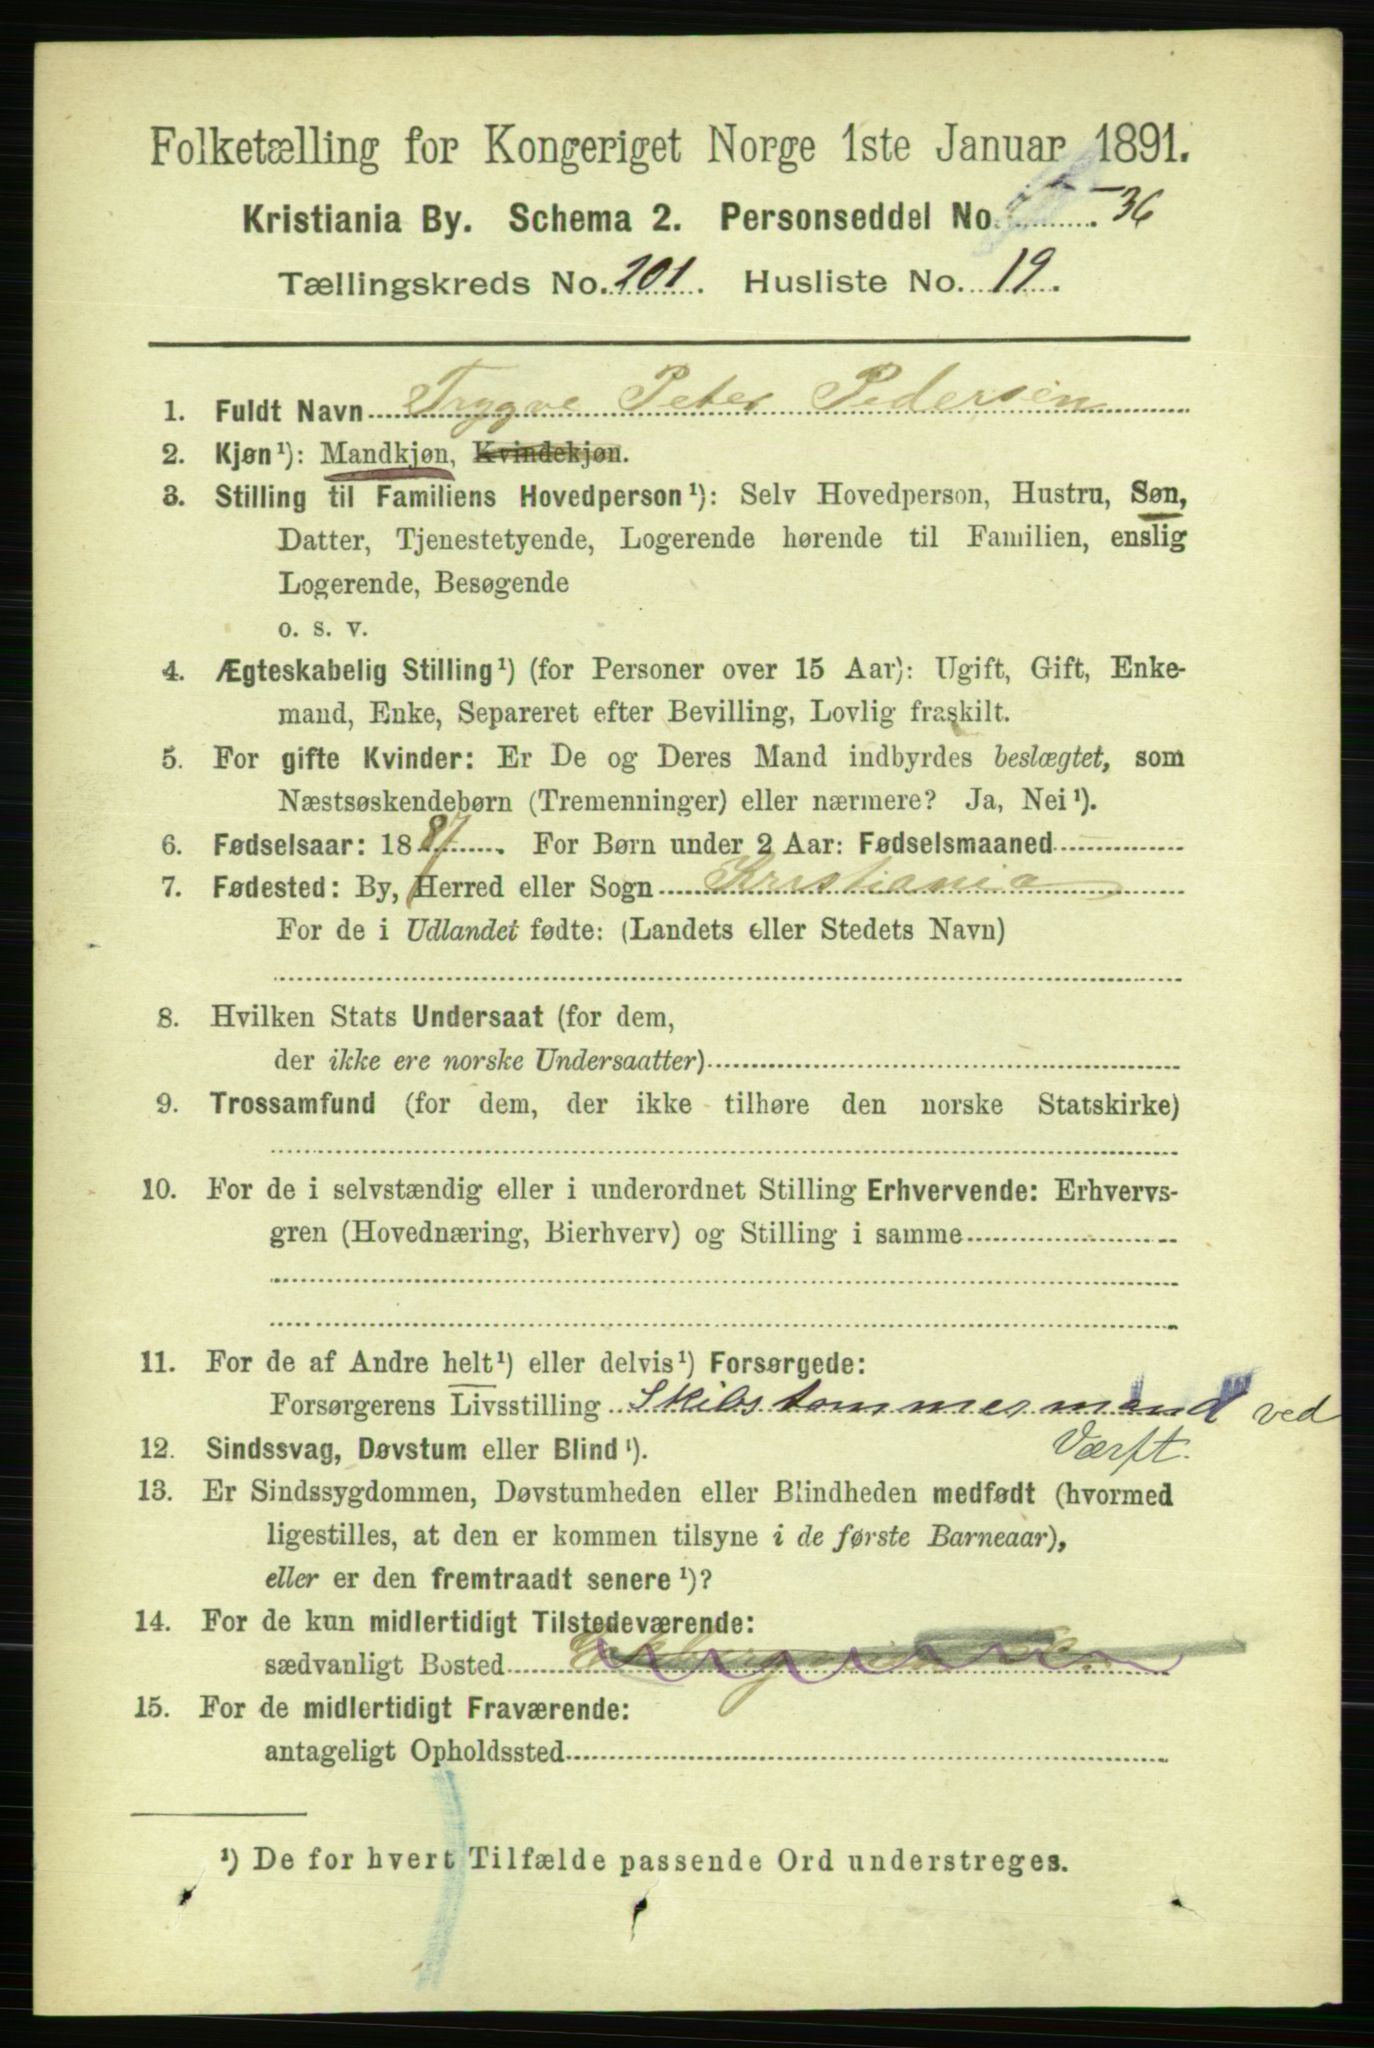 Folketælling for Kongeriget Norge 1ste Januar 1891.
Kristiania By. Schema 2. Personseddel No. 36
Tællingskreds No. 201. Husliste No. 19.
1. Fuldt Navn Trygve Peter Pedersen
2. Kjøn¹): Mandkjøn, Kvindekjøn.
3. Stilling til Familiens Hovedperson¹): Selv Hovedperson, Hustru, Søn,
Datter, Tjenestetyende, Logerende hørende til Familien, enslig
Logerende, Besøgende
o. s. v.
4. Ægteskabelig Stilling¹) (for Personer over 15 Aar): Ugift, Gift, Enke-
mand, Enke, Separeret efter Bevilling, Lovlig fraskilt.
5. For gifte Kvinder: Er De og Deres Mand indbyrdes beslægtet, som
Næstsøskendebørn (Tremenninger) eller nærmere? Ja, Nei¹).
6. Fødselsaar: 1887. For Børn under 2 Aar: Fødselsmaaned
7. Fødested: By, Herred eller Sogn Kristiania
For de i Udlandet fødte: (Landets eller Stedets Navn)
8. Hvilken Stats Undersaat (for dem,
der ikke ere norske Undersaatter)
9. Trossamfund (for dem, der ikke tilhøre den norske Statskirke)
10. For de i selvstændig eller i underordnet Stilling Erhvervende: Erhvervs-
gren (Hovednæring, Bierhverv) og Stilling i samme
11. For de af Andre helt¹) eller delvis¹) Forsørgede:
Forsørgerens Livsstilling Skibstømmesmand ved
Værft.
12. Sindssvag, Døvstum eller Blind¹).
13. Er Sindssygdommen, Døvstumheden eller Blindheden medfødt (hvormed
ligestilles, at den er kommen tilsyne i de første Barneaar),
eller er den fremtraadt senere¹)?
14. For de kun midlertidigt Tilstedeværende:
sædvanligt Bosted
15. For de midlertidigt Fraværende:
antageligt Opholdssted
¹) De for hvert Tilfælde passende Ord understreges.